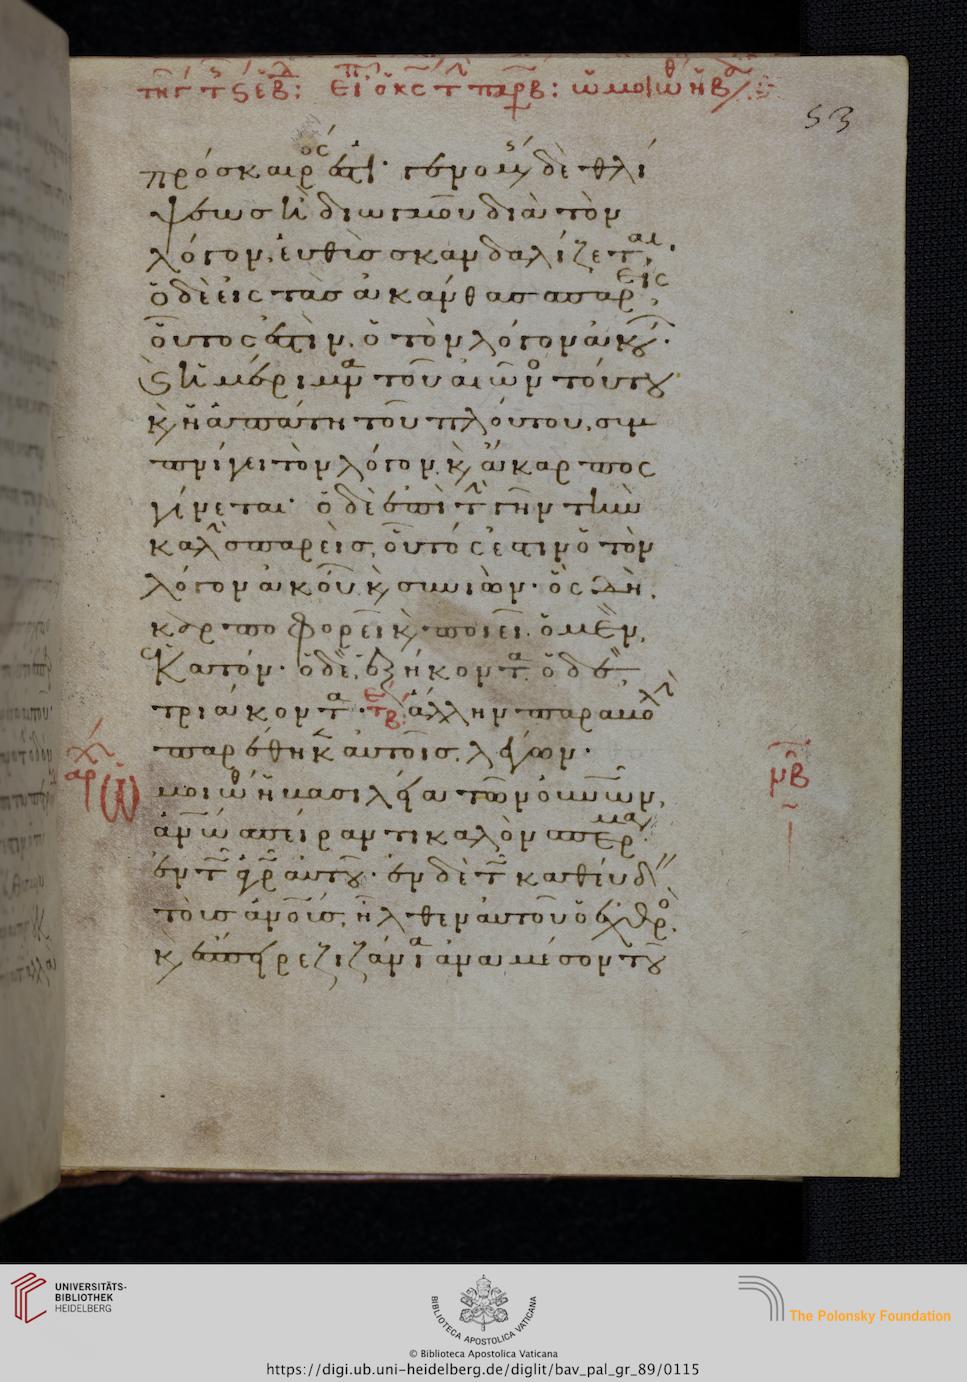 53
πρόσκαιρος ἐστι· γενομένης δὲ θλί
ψεως ἢ διωγμοῦ διὰ τὸν
λόγον, εὐθὺς σκανδαλίζεται·
ὁ δὲ εἰς τὰς ἀκάνθας σπαρείς,
οὗτος ἐστὶν, ὁ τὸν λόγον ἀκούων·
μέριμνα τοῦ αἰῶνος τούτου
κ ἡ ἀπάτη τοῦ πλούτου, συμ
πνίγει τὸν λόγον, κ ἄκαρπος
γίνεται· ὁ δὲ ἐπὶ τὴν γῆν τὴν
καλὴν σπαρεὶς, οὗτός ἐστιν ὁ τὸν
λόγον ἀκούων κ συνιὼν· ὃς δὴ,
καρποφορεῖ κ ποιεῖ. ὁ μὲν,
ἑκατόν· ὁ δὲ, ἑξήκοντα· ὁ δὲ
τριάκοντα· ἄλλην παραβολὴν
παρέθηκεν αὐτοῖς, λέγων·
μοιώθη ἡ βασιλεία τῶν οὐρανῶν,
ἀνῶ σπείραντι καλὸν σπέρμα
ἐν τῶ ἀγρῶ αὐτοῦ· ἐν δὲ τῶ καθεύδειν
τοὺς ἀνους, ἦλθεν αὐτοῦ ὁ ἐχθρὸς,
κ ἔσπειρε ζιζάνια ἀνὰ μέσον τοῦ
UNIVERSITÄTS-
BIBLIOTHEK
HEIDELBERG
BIBLIOTECA APOSTOLICA VATICANA
© Biblioteca Apostolica Vaticana
https://digi.ub.uni-heidelberg.de/diglit/bav_pal_gr_89/0115
The Polonsky Foundation